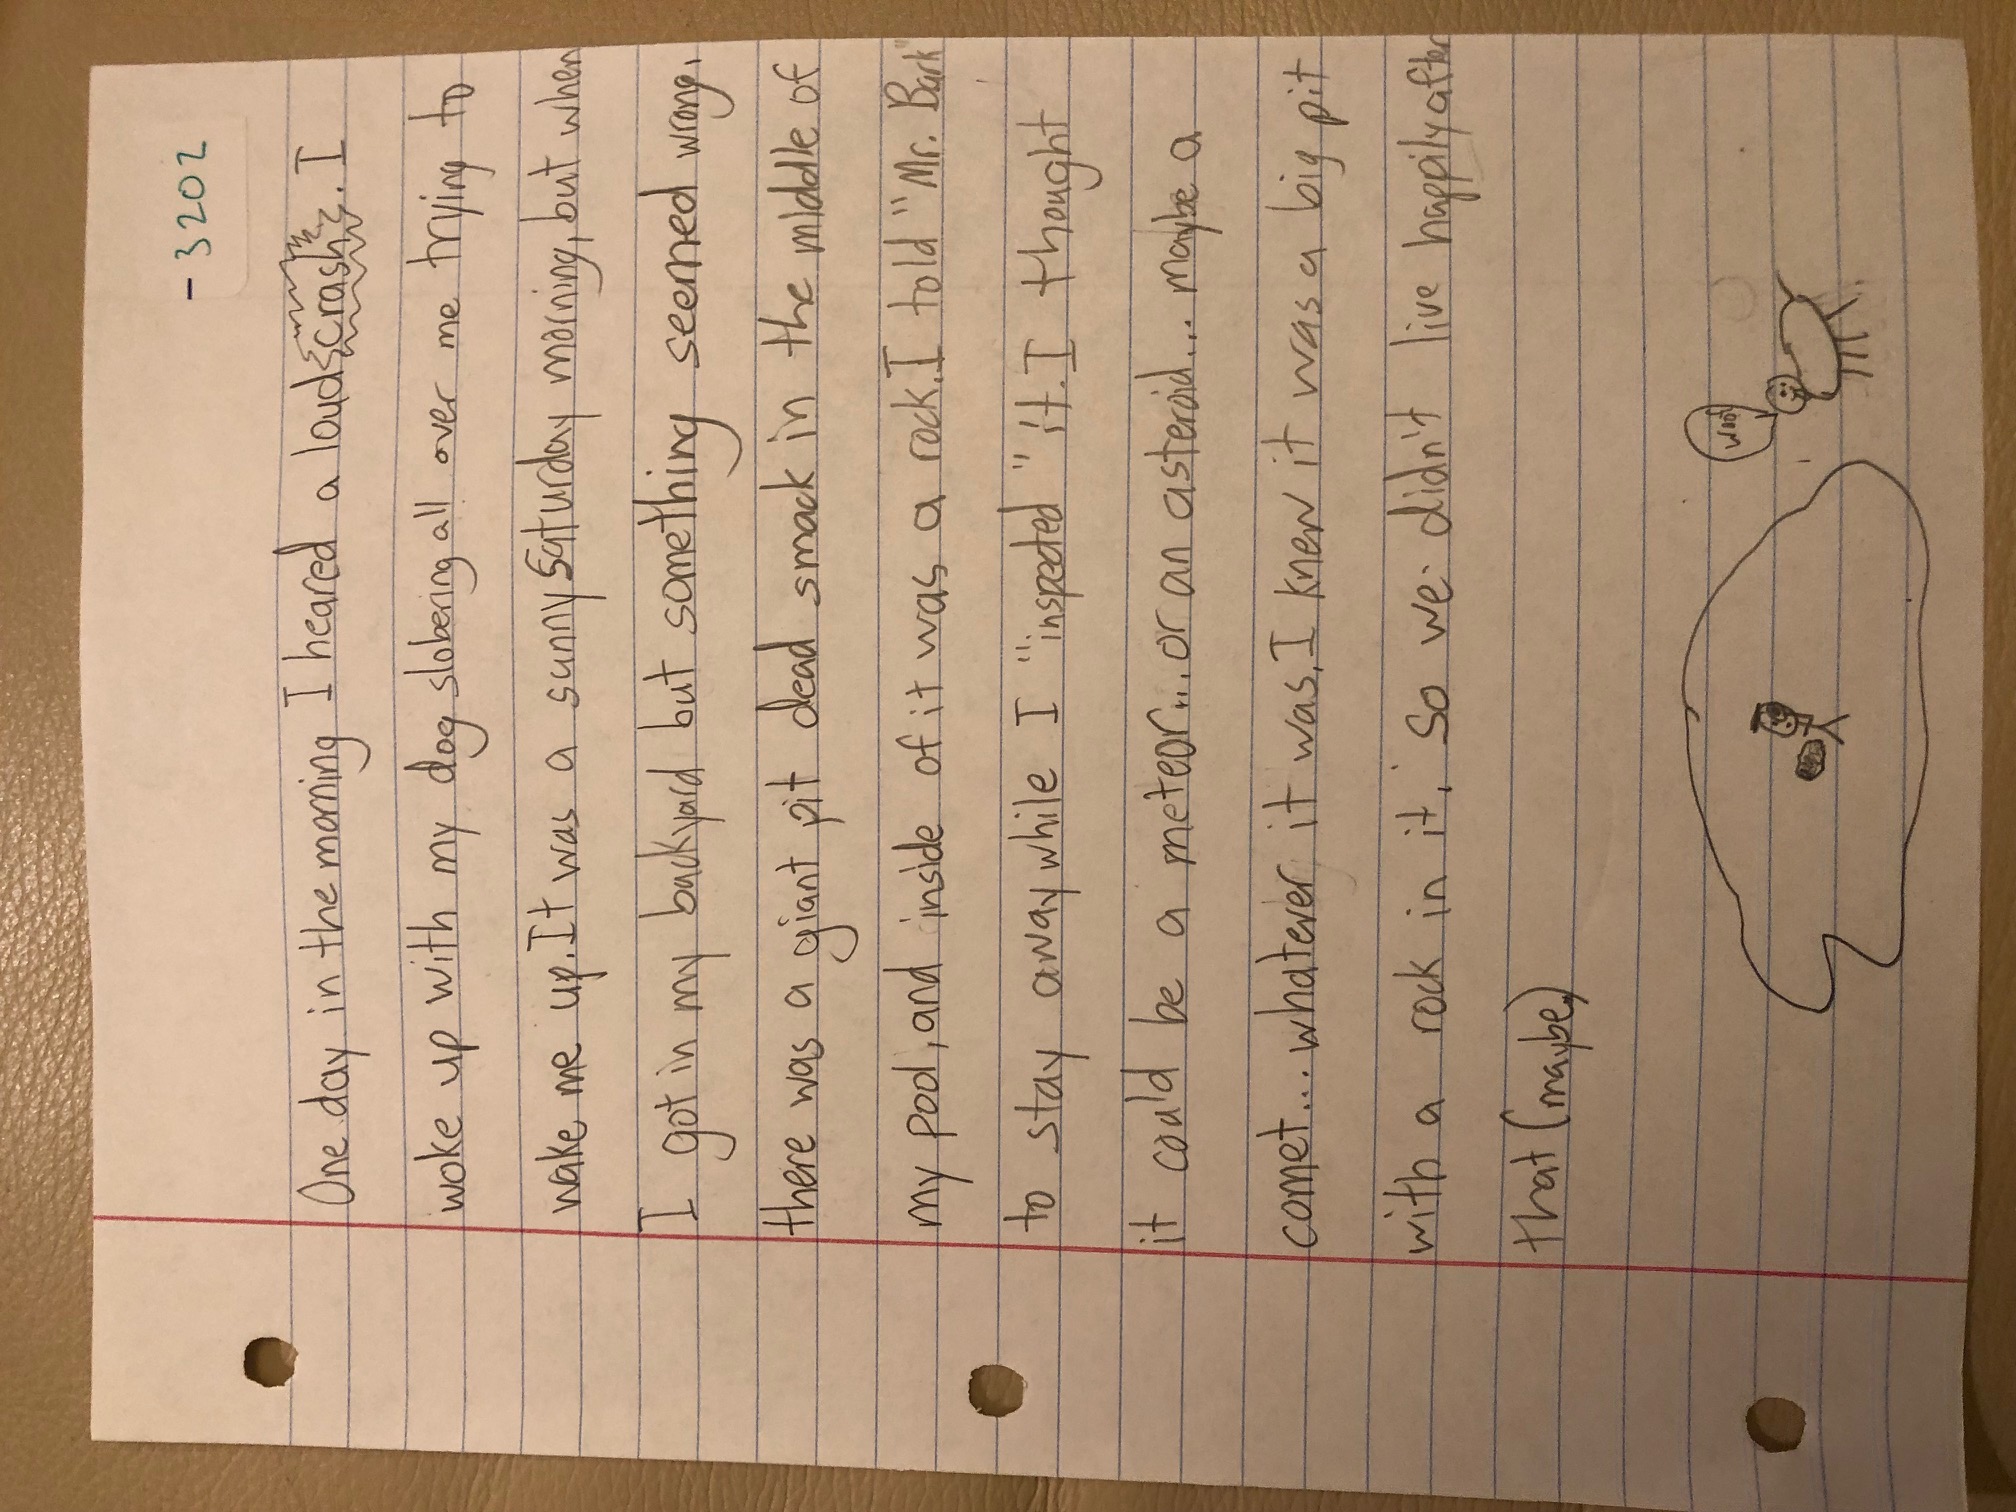 - 3202
One day in the morning I heared a loud crash. I
woke up with my dog slobering all over me trying to
wake me up. It was a sunny Saturday morning, but when
I got in my backyard but something seemed wrong.
there was a giant pit dead smack in the middle of
my pool, and inside of it was a rock. I told "Mr. Bark"
to stay away while I "inspected" it. I thought
it could be a meteor... or an asteroid... maybe a
comet... whatever it was, I knew it was a big pit
with a rock in it. So we didn't live happily after
that (maybe)
woof